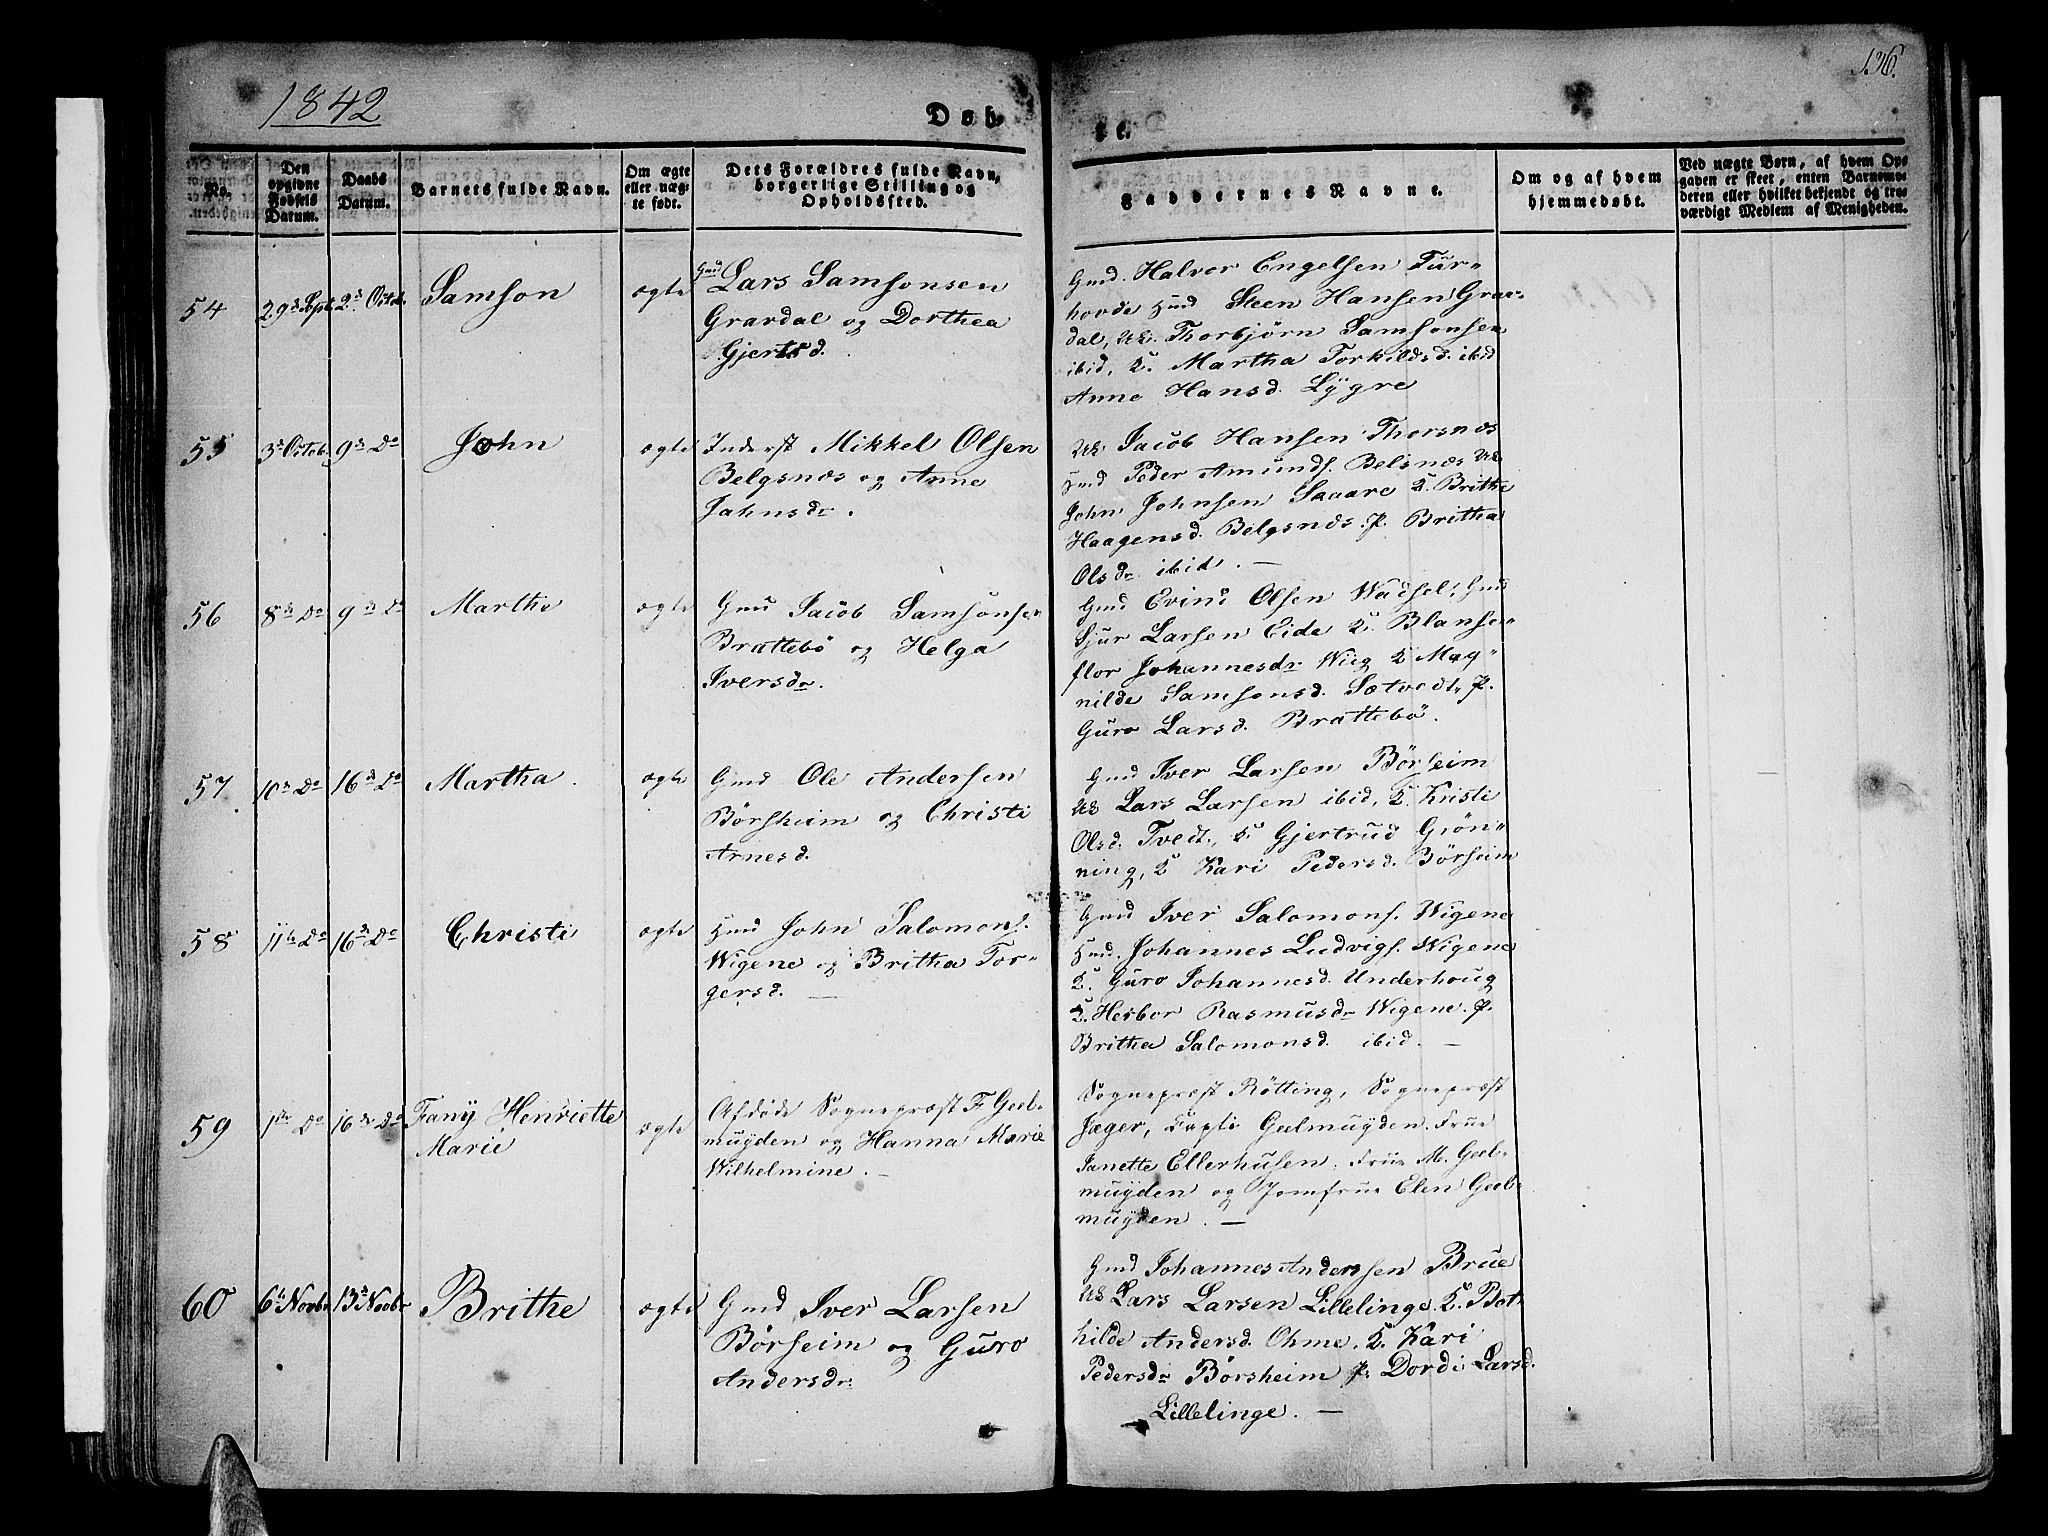 1842
Døb
te.
136.
No.
Den opgivne Fødsels Datum.
Daabs Datum.
Barnets fulde Navn.
Om ægte eller uæg- te født.
Dets Forældres fulde Navn, borgerlige Stilling og Opholdsted.
Faddernes Navne.
Om og af hvem hjemmedøbt.
Ved uægte Børn, af hvem Op-
gaven er skeet, enten Barnemo-
deren eller hvilket bekjendt og tro-
værdigt Medlem af Menigheden.
54
29de Sept.
2den Octob.
Samson
ægte
Gmd Lars Samsonsen
Grardal og Dorthea
Gjertsd.
Gmd. Halvor Engelsen Tur-
hovde Hmd Steen Hansen Grar-
dal, UK. Thorbjörn Samsonsen
ibid, K. Martha Torkildsd. ibid
Anne Hansd. Lÿgre
55
3de Octob.
9de Do
John
ægte
Inderst Mikkel Olsen
Belgsnæs og Anne
Jahnsdr.
UK. Jacob Hansen Thorsnæs
Hmd Peder Amunds. Belsnæs UK
John Johnsen Skaare K. Brithe
Haagensd. Belgsnæs. P. Britha
Olsdr ibid. —
56
8de Do
9de Do
Marthe
ægte
Gmd Jacob Samsonsen
Brattebö og Helga
Iversdr.
Gmd Evind Olsen Wadsel, Gmd
Sjur Larsen Eide K. Blanse-
flor Johannesdr Wiig K Mag-
nilde Samsonsd. Sætvedt, P.
Guro Larsd. Brattebö.
57.
10de Do
16de Do
Martha.
ægte
Gmd Ole Andersen
Börsheim og Christi
Arnesd.
Gmd Iver Larsen Börseim
UK Lars Larsen ibid, K. Kristi
Olsd. Tvedt, K. Gjertrud Grön-
ning, K Kari Pedersd. Börseim
58
11te Do
16de Do
Christi
ægte
Hmd John Salomons.
Wigene og Britha Tor-
gersd. —
Gmd Iver Salomons. Wigene
Hmd. Johannes Ludvigs. Wigene
K. Guro Johannesd. Underhoug
K. Herbor Rasmusdr Wigene. P.
Britha Salomonsd. ibid. —
59
1ste Do
16de Do
Fanÿ Henriette
Marie
ægte
Afdöde Sognepræst F. Geel-
muÿden og Hanna Marie
Wilhelmine. —
Sognepræst Rötting, Sognepræst
Jæger, Geelmuÿden. Frue
Janette Ellerhusen, Frue M. Geel-
muÿden og Jomfrue Elen Geel-
muÿden. —
60
6te Novbr
13de Novbr
Brithe
ægte
Gmd Iver Larsen
Börseim og Guro
Andersdr.
Gmd Johannes Andersen Brue
UK Lars Larsen Lillelinge. K. Bot-
hilde Andersd. Ohme. K. Kari
Pedersdr Börsheim P. Dordi Larsd.
Lillelinge. —